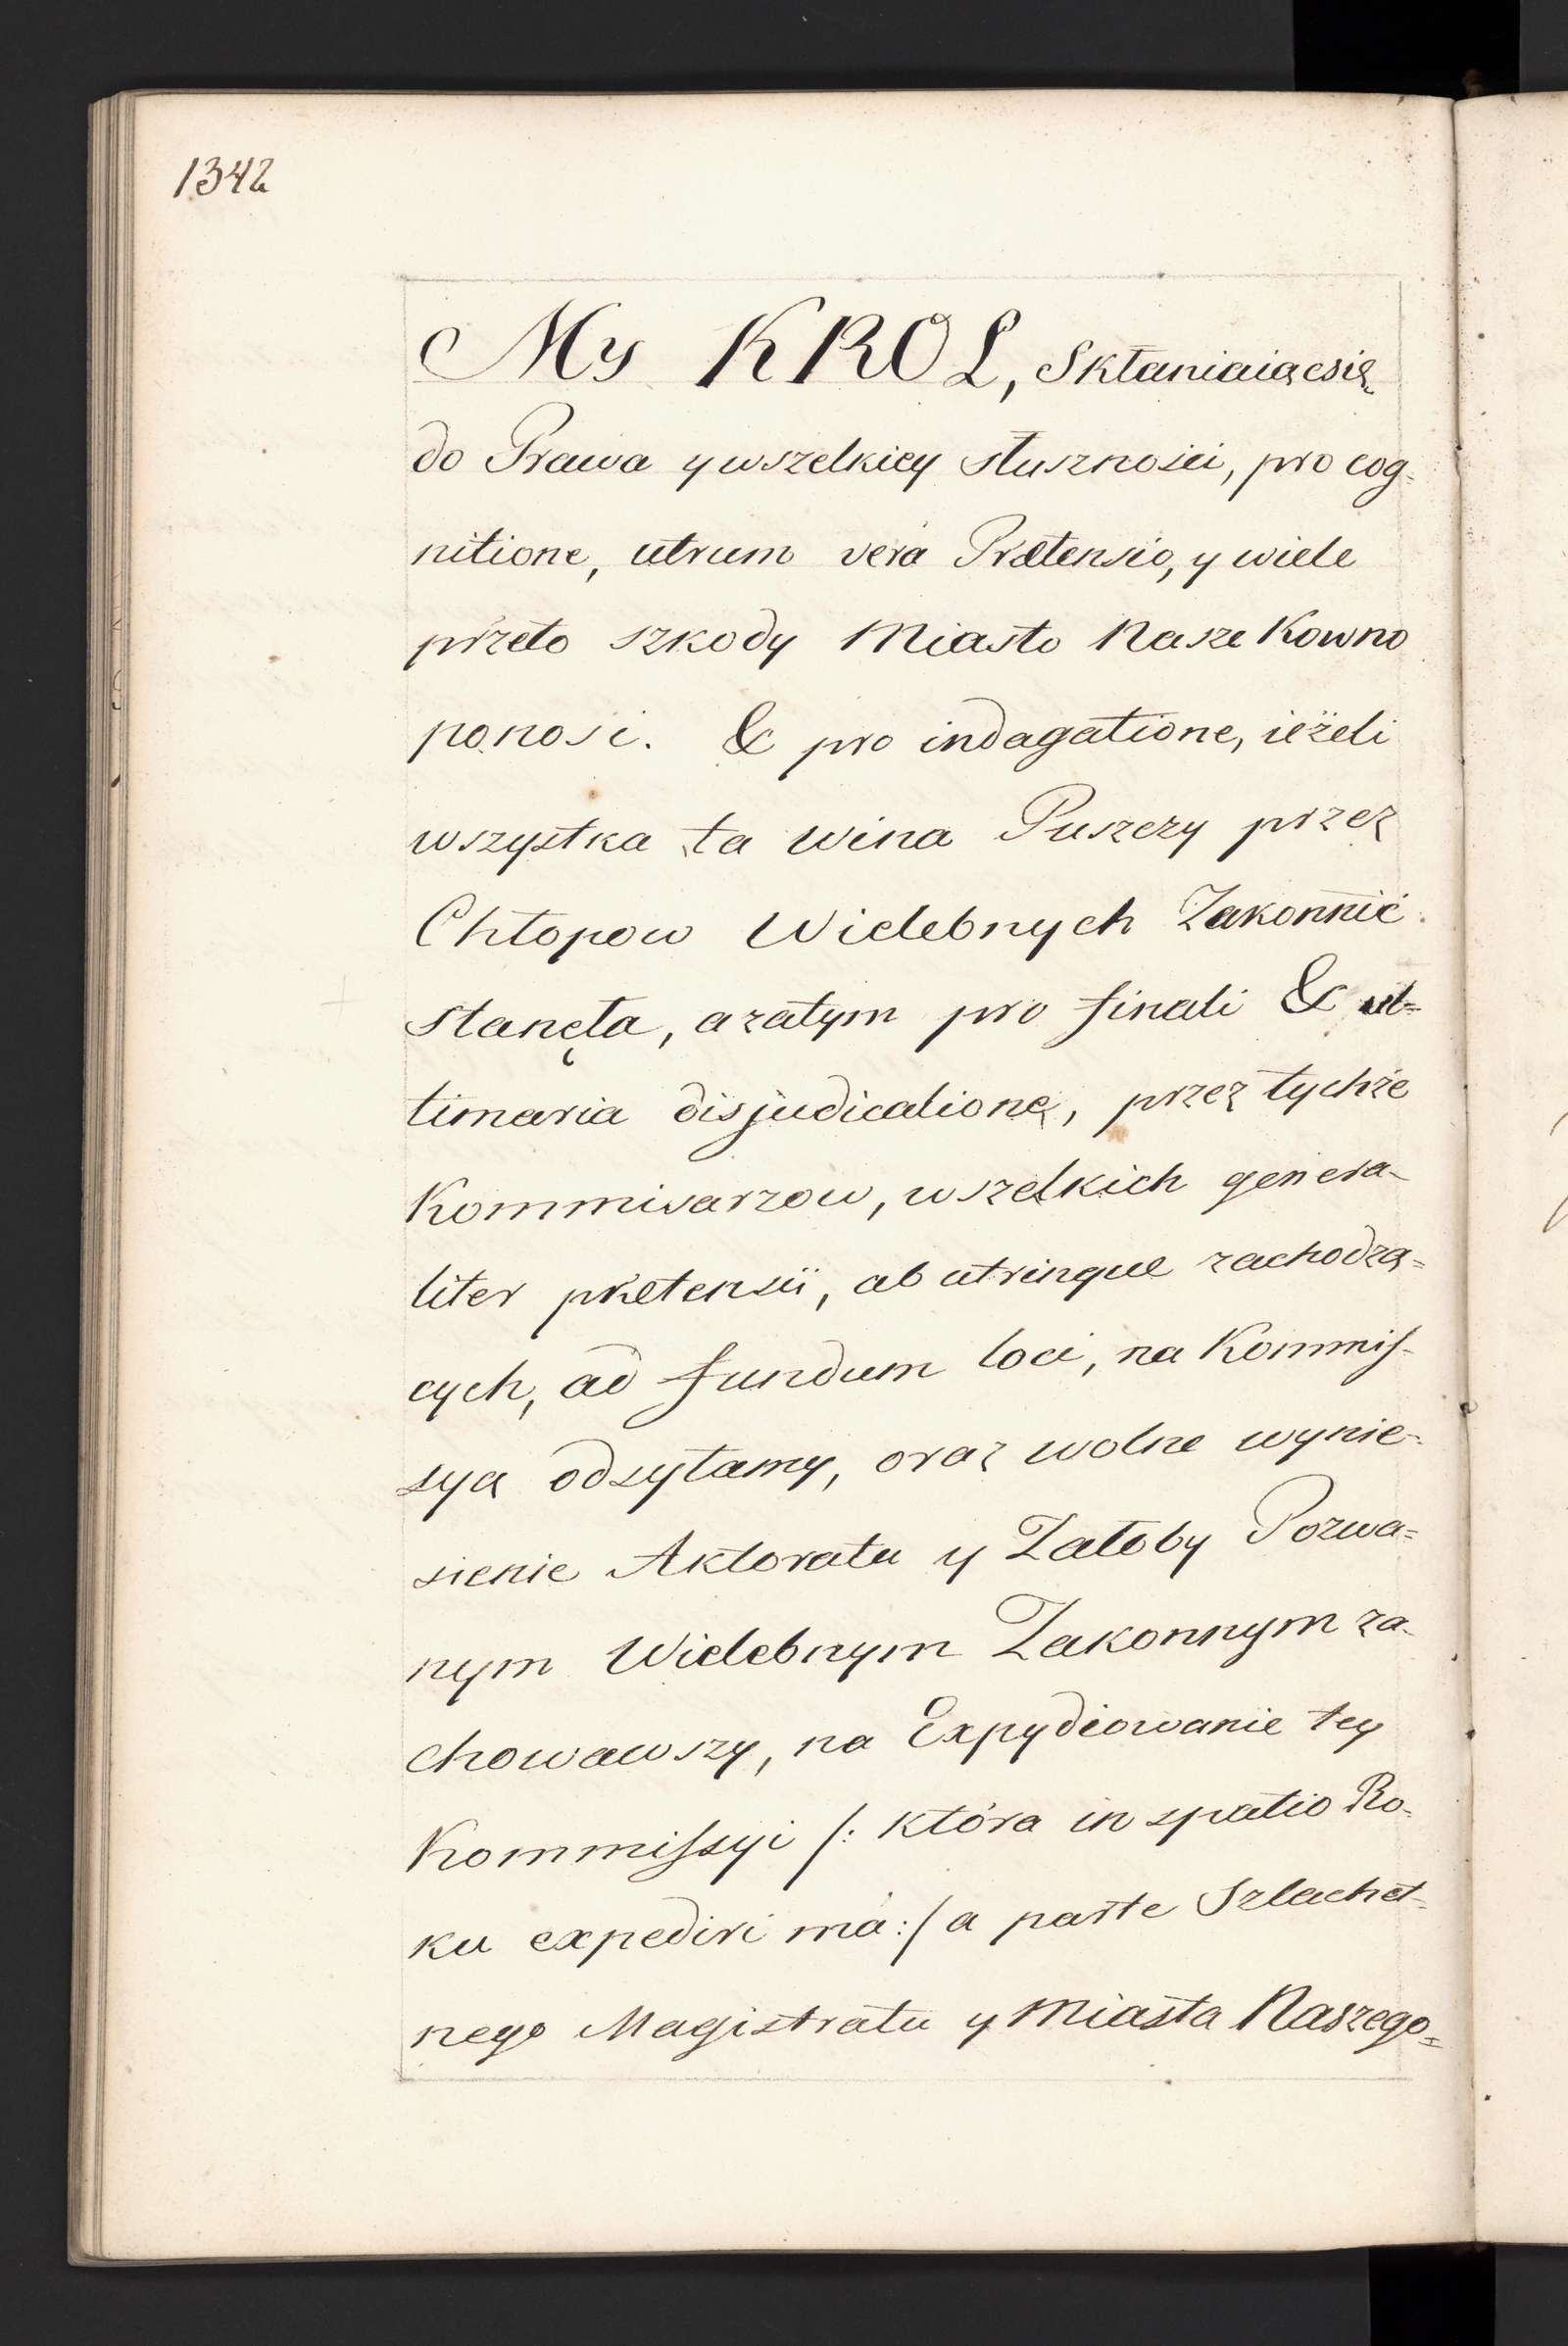 1342
My KROL, Skłaniaiącsię
do Prawa y wszelkiey słusznośći, pro cog=
nitione, utrum vera Prætensio, y wiele
przeto szkody Miasto Nasze Kowno
ponosi. & pro indagatione, ieżeli
wszystka ta wina Puszczy przez
Chłopow Wielebnych Zakonnić
stanęła, a zatym pro finali & ul=
timaria disjudicatione, przez tychże
Kommisarzow, wszelkich genera-
liter prætensii, ab utrinque zachodzą=
cych, ad fundum loci, na Kommis-
syą odsyłamy, oraz wolne wynie-
sienie Aktoratu y Załoby Pozwa=
nym Wielebnym Zakonnym za-
chowawszy, na Expydiowanie tey
Kommissyi /: która in spatio Ro-
ku expediri má :/ a parte Szlachet-
nego Magistratu y Miasta Naszego=